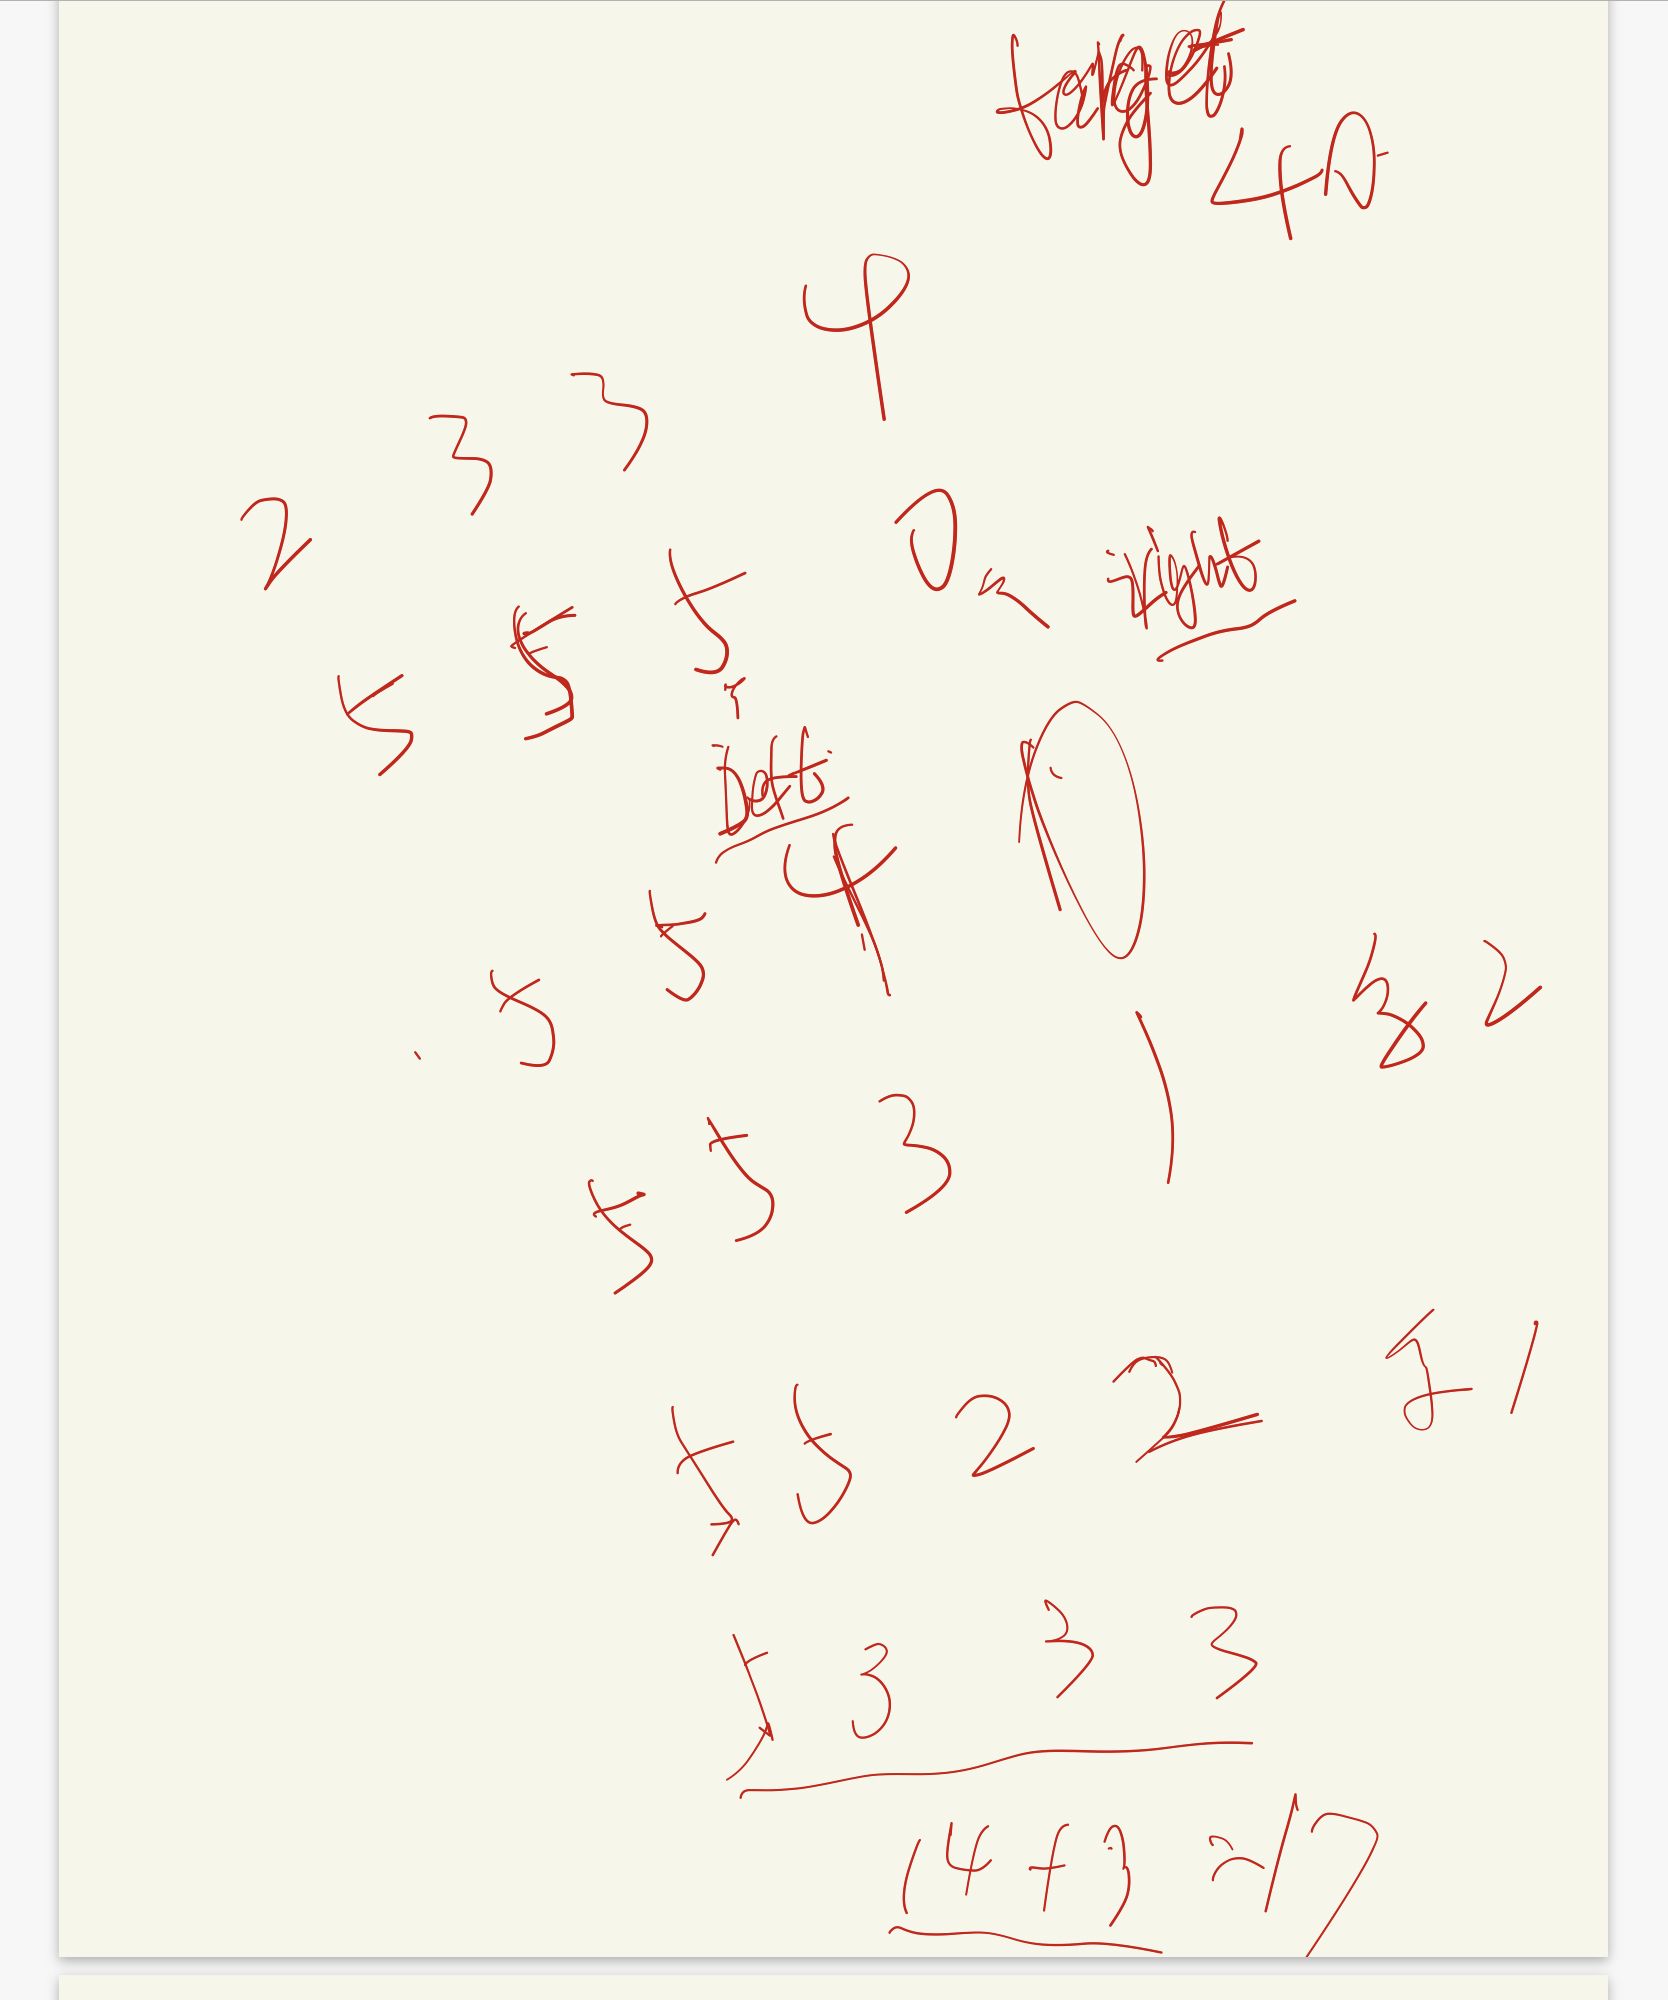 target
40
4
3
3
2
0
right
5
5
5
left
0
4
5
5
3 2
1
3
5
5
5 5 2 2
1
5 3 3 3
14 + 3 = 17